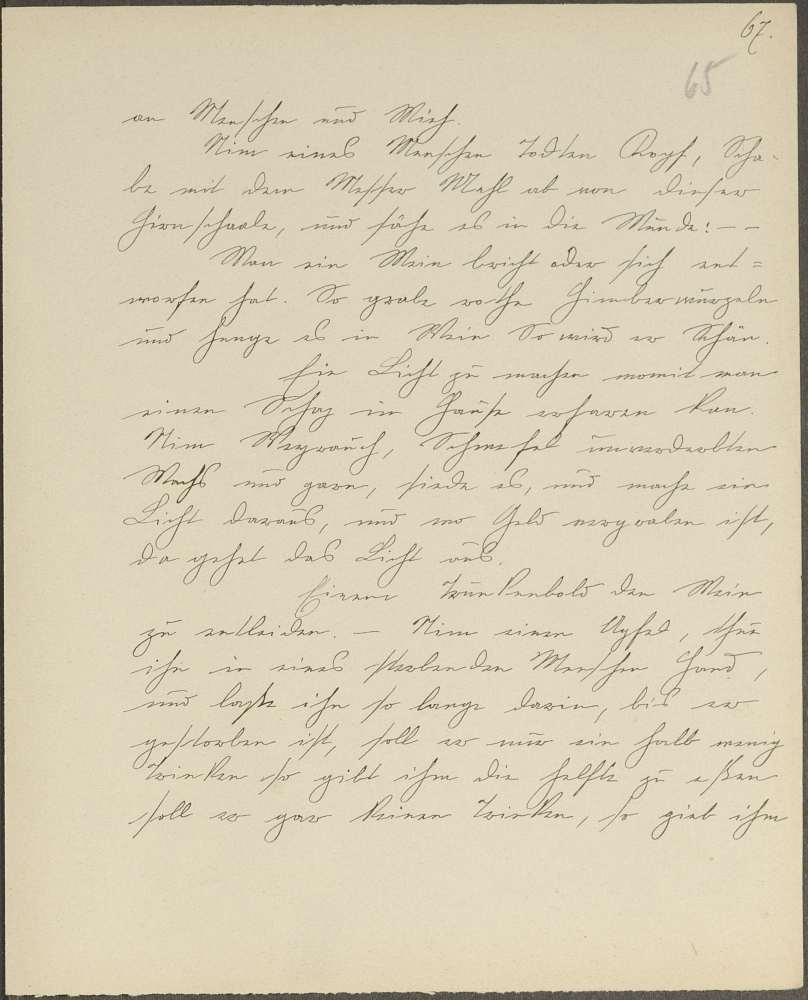 67.
65
an Menschen und Vieh.
Nim eines Menschen Todten Kopf, Scha-
be mit dem Messer Mehl ab von dieser
Hirnschaale, und sähe es in die Wunde: – –
Wan ein Wein bricht oder sich ent=
worfen hat. So grabe rothe Himberwurzeln
und henge es in Wein So wird er Schön.
Ein Licht zu machen womit man
einen Schaz im Hause erfaren kan.
Nim Weyrauch, Schwefel unverderbten
Wachs und garn, siede es, und mache ein
Licht daraus, und wo Geld vergraben ist,
da gehet das Licht aus.
Einem Trunkenbold den Wein
zu entleiden. – Nim einen Apfel, thue
ihn in eines sterbenden Menschen Hand,
und laße ihn so lange darin, bis er
gestorben ist, soll er nur ein halb wenig
Trinken so gibt ihm die helfte zu eßen
soll er gar keinen Trinken, so gieb ihm